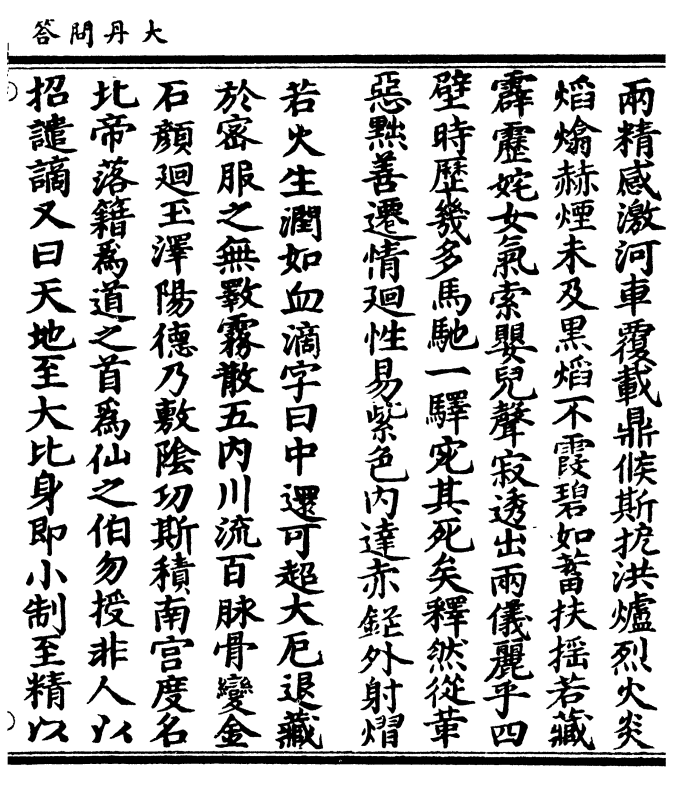 大丹問答
兩精感激河車覆載鼎候斯扢洪爐烈火炎
焰熻赫煙未及黑焰不霞碧如蓄扶揺若藏
霹靂姹女氣索嬰兒聲寂透出兩儀麗乎四
壁時歷幾多馬馳一驛宛其死矣釋然從革
惡黜善遷情廻性易紫色内達赤鋩外射熠
若火生潤如血滴字曰中還可超大厄退藏
於密服之無斁霧散五内川流百脉骨變金
石顔廻玉澤陽德乃敷陰功斯積南宫度名
北帝落籍爲道之首爲仙之伯勿授非人以
招譴謫又曰天地至大比身即小制至精以